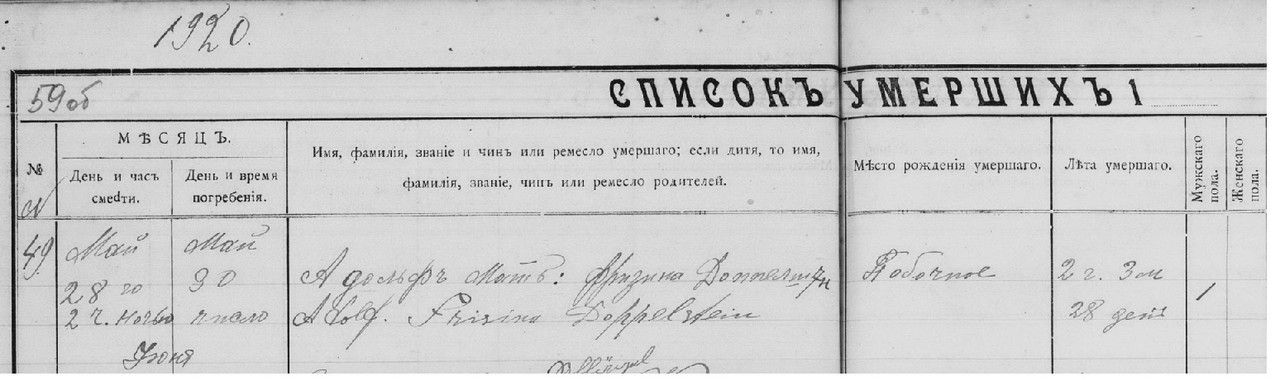 1920.
59 об
СПИСОКЪ УМЕРШИХЪ 1
№ №
МѢСЯЦЪ.
День и часъ смерти.
День и время погребенія.
Имя, фамилія, званіе и чинъ или ремесло умершаго; если дитя, то имя,
фамилія, званіе, чинъ или ремесло родителей.
Мѣсто рожденія умершаго.
Лѣта умершаго.
Мужскаго пола.
Женскаго пола.
49.
Май
28 го
2 ч. ночью
Май
30
число
Адольфъ Мать: Фризина
Adolf. Frizina Doppelstein
Побочное
2 г. 3 м
28 дей
1
Июня